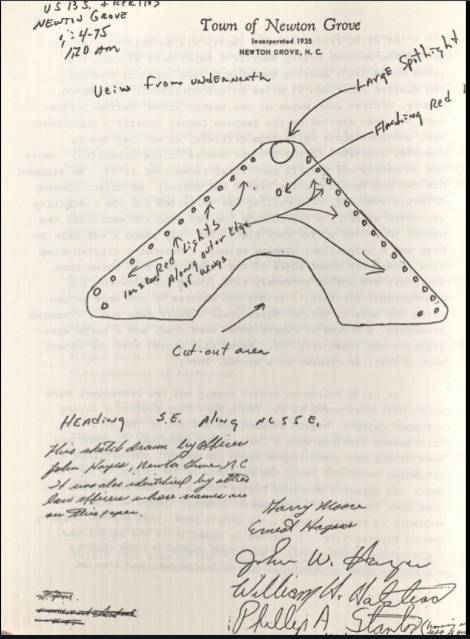 U.S. 13 S.
NEWTON GROVE
4-75
120 AM
Town of Newton Grove
Incorporated 1935
NEWTON GROVE, N. C.
Veiw From UNDERNEATH
LARGE Spotlight
Flashing Red
Red Lights
Along Outer Edge
of Wings
Cut-out area
HEADING S.E. Along NC 55 E.
This sketch drawn by officer
John Hayes, Newton Grove, N.C
It was also identified by other
law officers whose names are
on this paper.
Harry Moore
Ernest Hagans
John W. Hayes
William H. Halstead
Phillip A Stanton